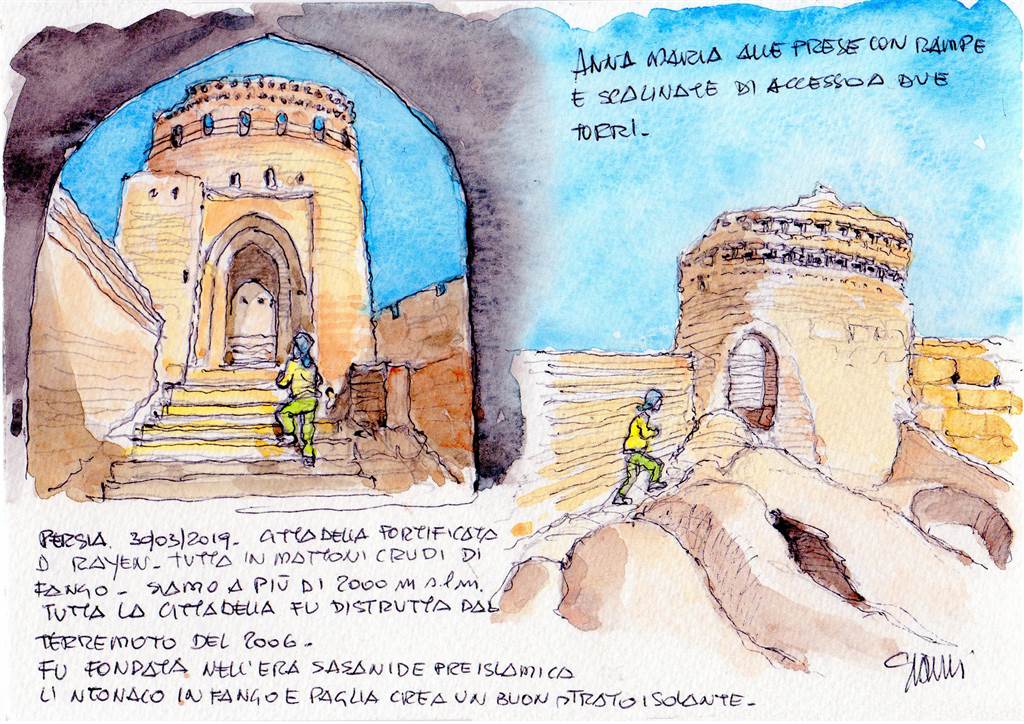 ANNA MARIA ALLE PRESE CON RAMPE
E SCALINATE DI ACCESSO A DUE
TORRI-
PERSIA. 30/03/2019. CITTADELLA FORTIFICATA
D RAYEN- TUTTA IN MATTONI CRUDI DI
FANGO- SIAMO A PIÙ DI 2000 m s.l.m.
TUTTA LA CITTADELLA FU DISTRUTTA DAL
TERREMOTO DEL 2006-
FU FONDATA NELL'ERA SASANIDE PREISLAMICA
L'INTONACO IN FANGO E PAGLIA CREA UN BUON STRATO ISOLANTE-